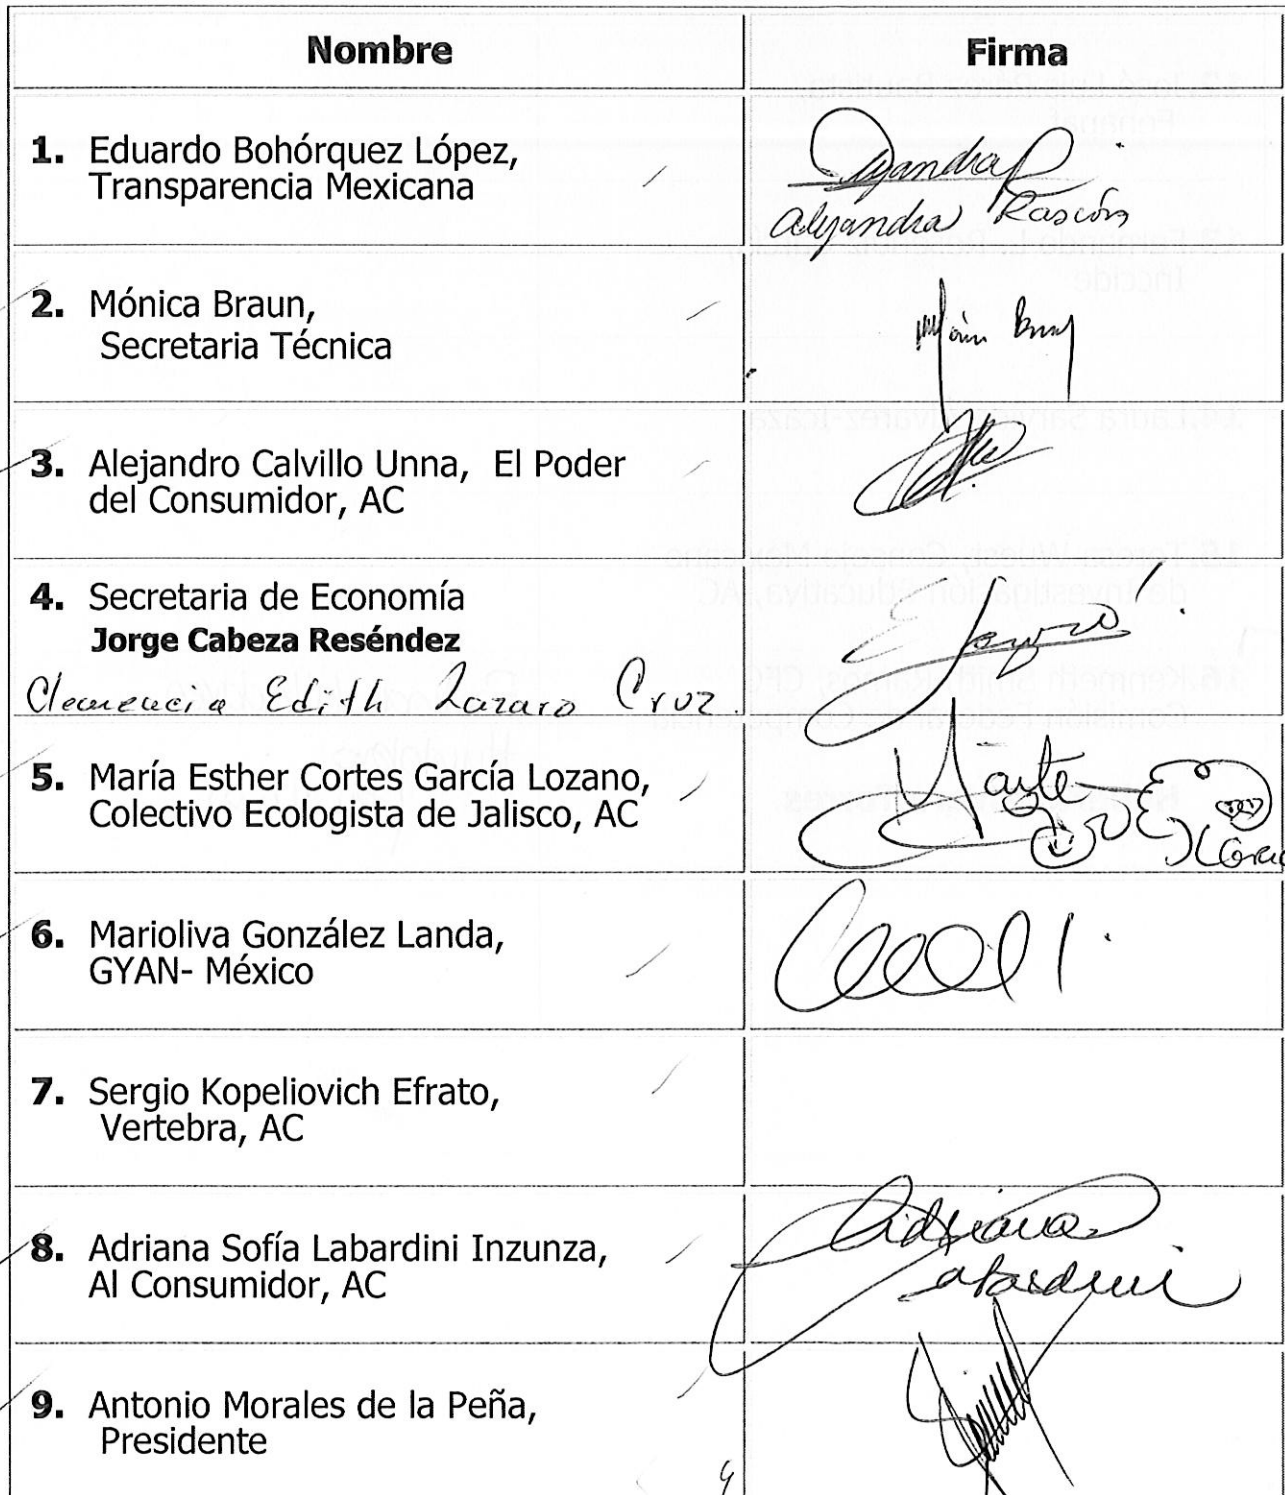 Nombre
Firma
1. Eduardo Bohórquez López,
Transparencia Mexicana
Alejandra Rascón
2. Mónica Braun,
Secretaria Técnica
3. Alejandro Calvillo Unna, El Poder
del Consumidor, AC
4. Secretaria de Economía
Jorge Cabeza Reséndez
Clemencia Edith Lazaro Cruz.
5. María Esther Cortes García Lozano,
Colectivo Ecologista de Jalisco, AC
6. Marioliva González Landa,
GYAN- México
7. Sergio Kopeliovich Efrato,
Vertebra, AC
8. Adriana Sofía Labardini Inzunza,
Al Consumidor, AC
Adriana
Labardini
9. Antonio Morales de la Peña,
Presidente